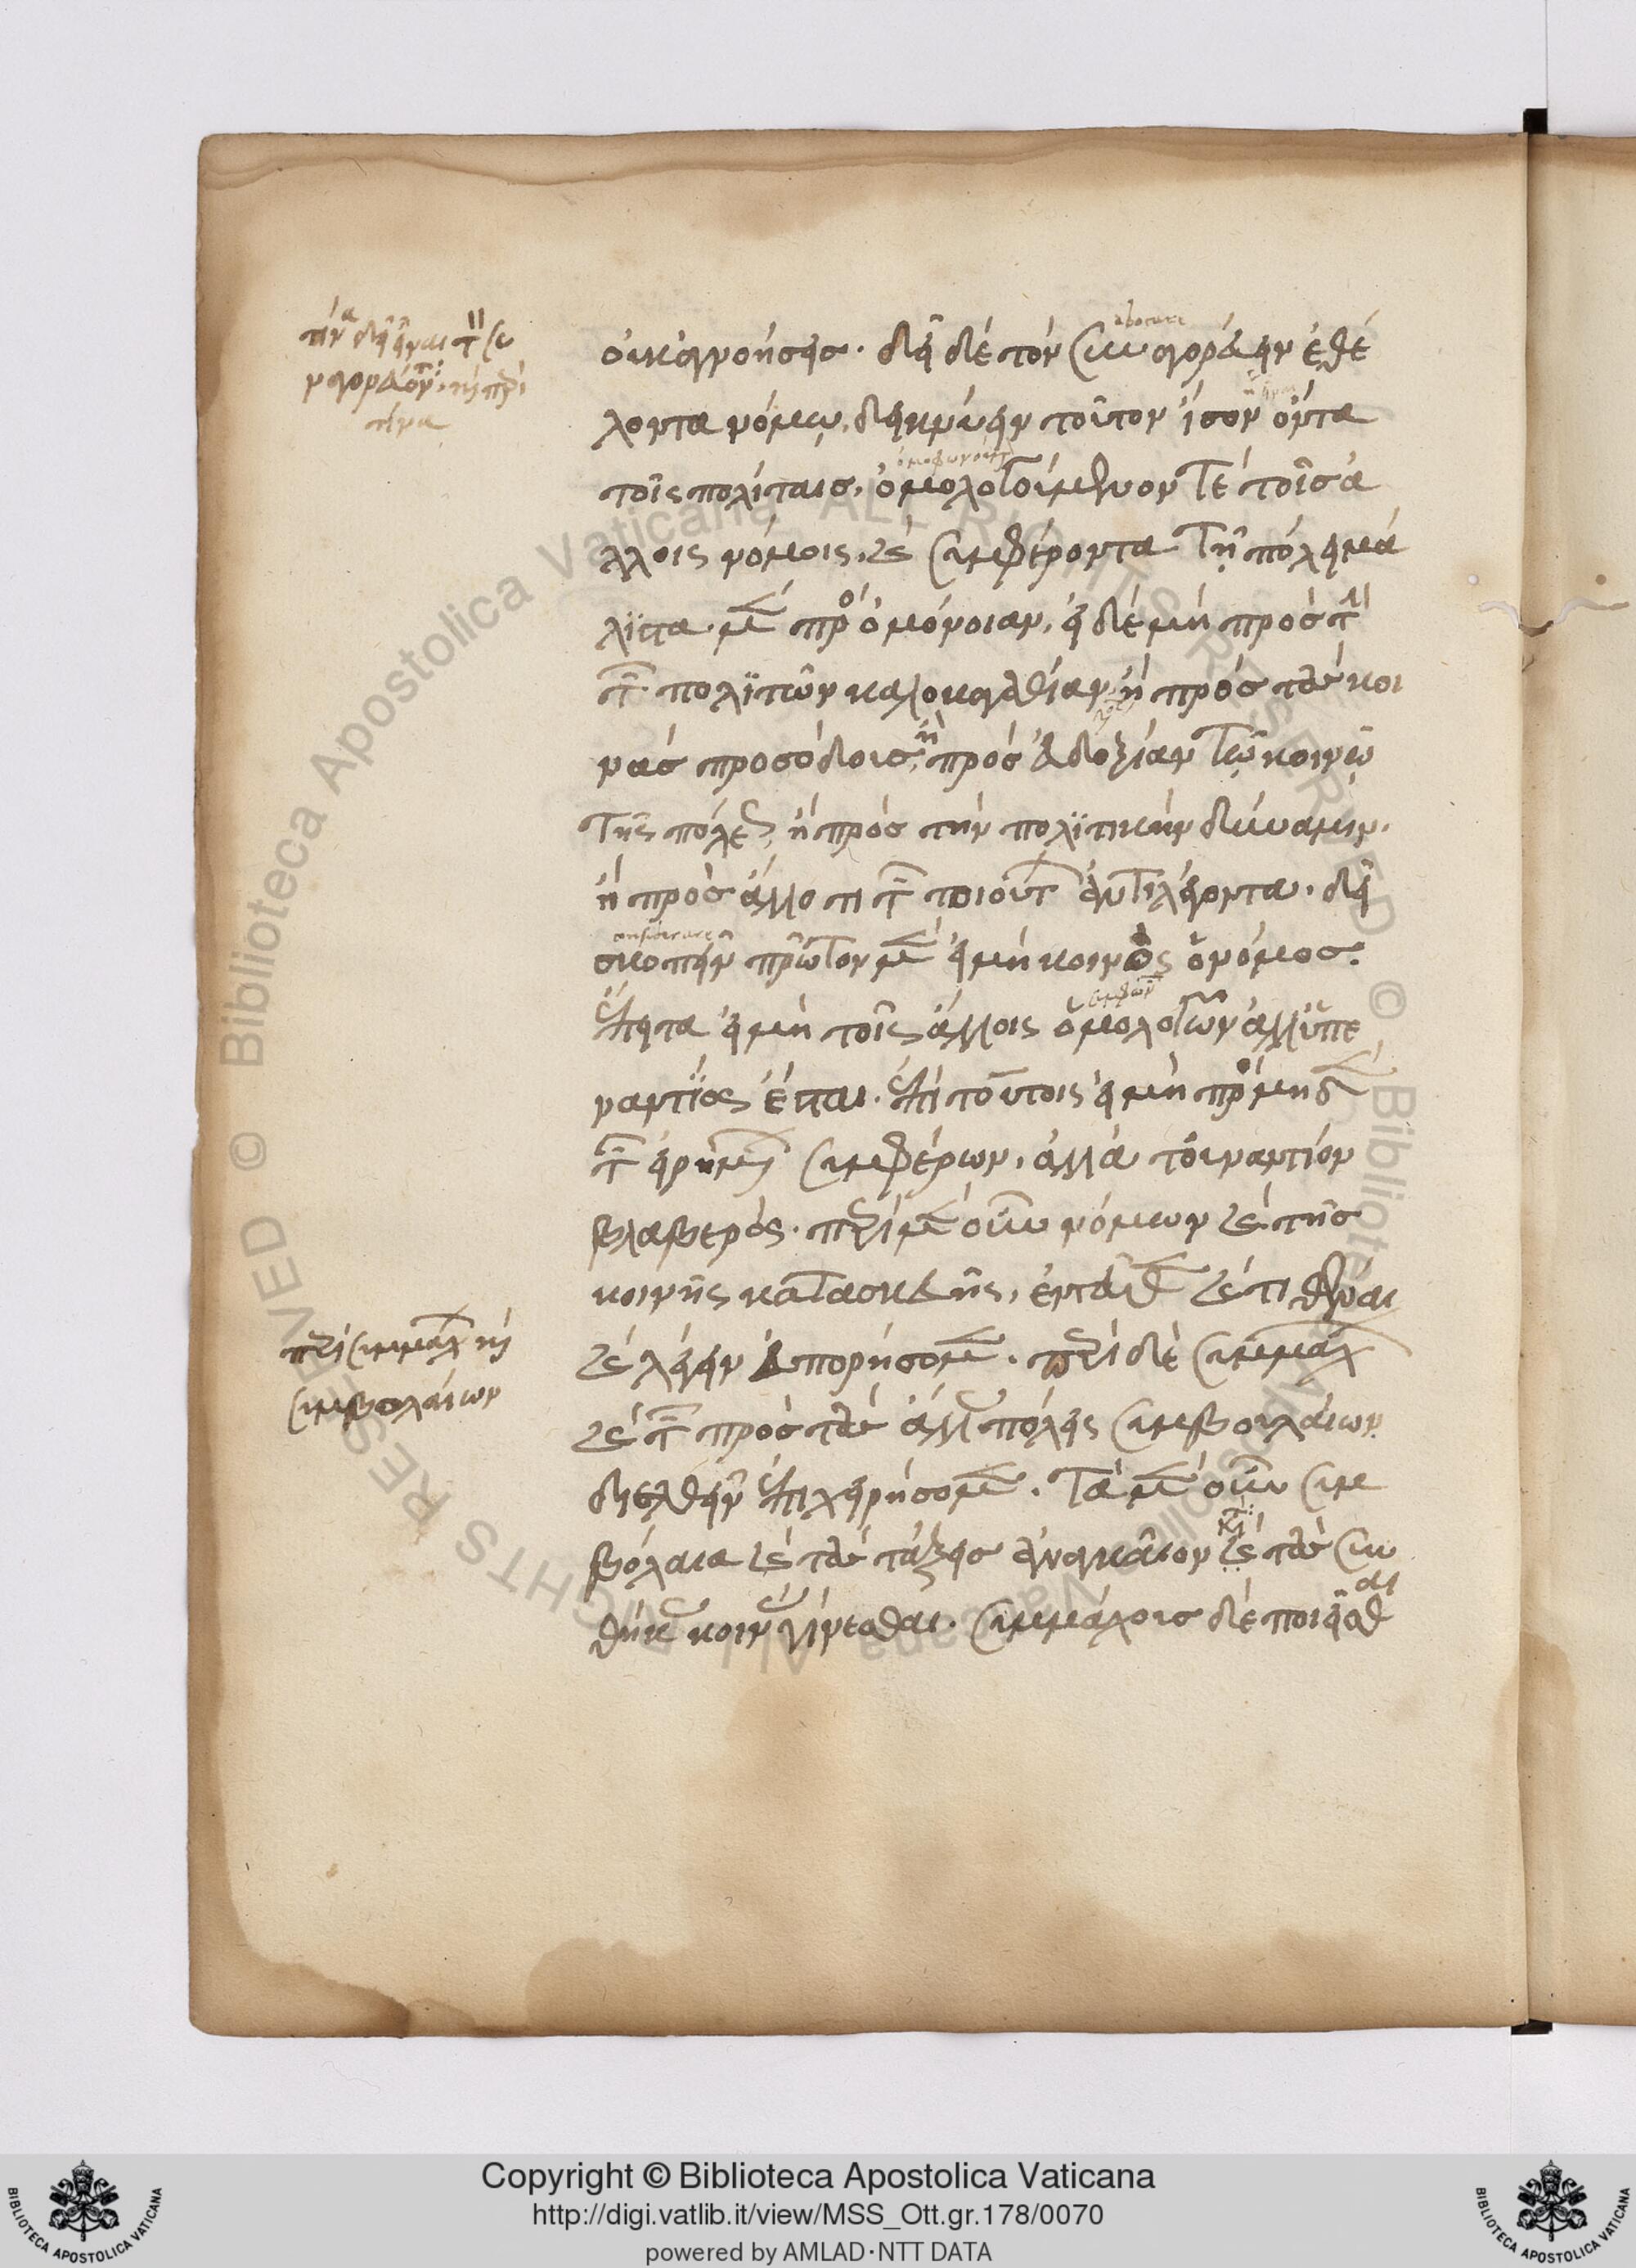 οικαγνοήσεις. δεῖ δὲ τὸν συναγορεύειν ἐθέ
λοντα νόμῳ, δεικνύειν τοῦτον ἴσον ὄντα
τοῖς πολίταις, ὁμολογούμενόν τε τοῖς ἀ
λλοις νόμοις, καὶ συμφέροντα τῇ πόλει μά
λιστα μὲν πρὸς ὁμόνοιαν, εἰ δὲ μὴ πρὸς τὴν
τῶν πολιτῶν καλοκαγαθίαν ἢ πρὸς τὰς κοι
νὰς προσόδους, ἢ πρὸς εὐδοξίαν τῷ κοινῷ
τῆς πόλεως, ἢ πρὸς τὴν πολιτικὴν δύναμιν.
ἢ πρὸς ἄλλο τι τῶν τοιούτων ἀντιλέγοντα. δεῖ
σκοπεῖν πρῶτον μὲν εἰ μὴ κοινὸς ὁ νόμος.
ἔπειτα εἰ μὴ τοῖς ἄλλοις ὁμολογῶν ἀλλ' ὑπε
ναντίος ἔσται. ἐπὶ τούτοις εἰ μὴ πρὸς μηδὲν
τῶν εἰρημένων συμφέρων, ἀλλὰ τοὐναντίον
βλαβερός. περὶ μὲν οὖν νόμων καὶ τῆς
κοινῆς κατασκευῆς, ἐνταῦθεν καὶ τιθέναι
καὶ λέγειν εὐπορήσομεν. περὶ δὲ συμμαχιῶν
καὶ τῶν πρὸς τὰς ἄλλας πόλεις συμβουλαίων
διελθεῖν ἐπιχειρήσομεν. τὰ μὲν οὖν συμ
βόλαια καὶ τὰς τάξεις ἀναγκαῖον καὶ τὰς συν
θήκας κοινὰς γίνεσθαι. συμμάχους δὲ ποιεῖσθαι
περὶ συμμαχιῶν καὶ
συμβολαίων
Copyright © Biblioteca Apostolica Vaticana
http://digi.vatlib.it/view/MSS_Ott.gr.178/0070
powered by AMLAD·NTT DATA
BIBLIOTECA APOSTOLICA VATICANA
BIBLIOTECA APOSTOLICA VATICANA